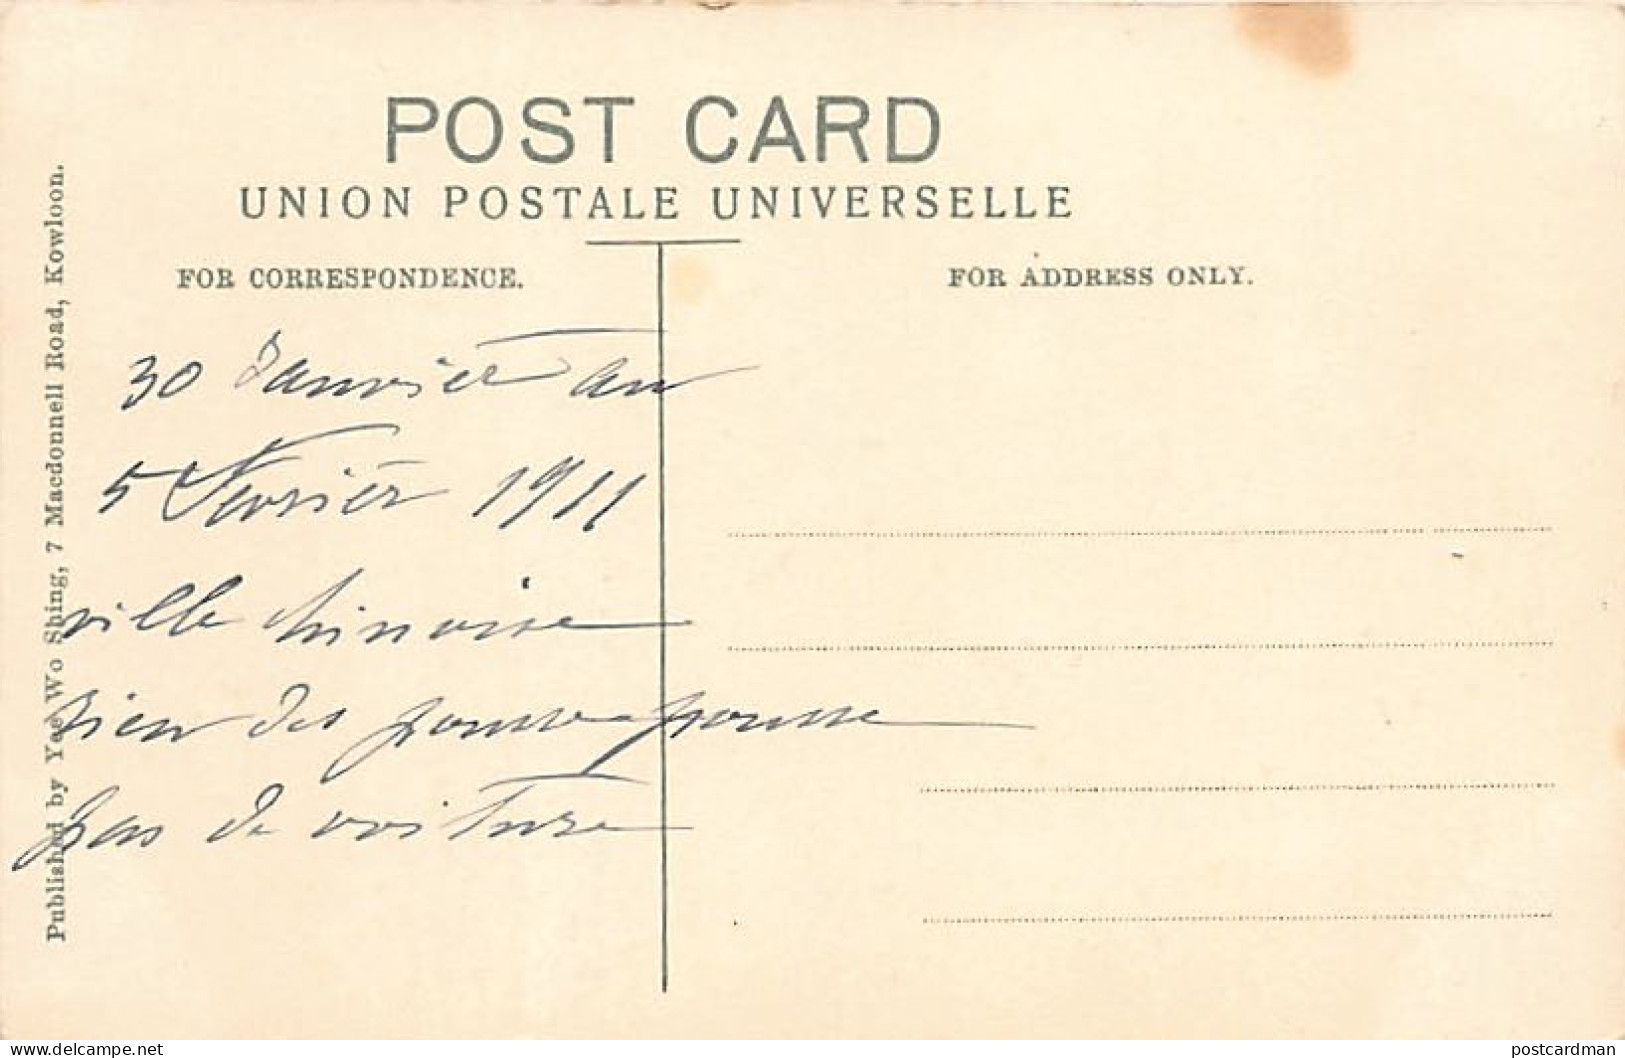 POST CARD
UNION POSTALE UNIVERSELLE
FOR CORRESPONDENCE.
FOR ADDRESS ONLY.
30 Janvier au
5 Fevrier 1911
ville chinoise
rien des pousse pousse
pas de voiture
Published by Yee Wo Shing, 7 Macdonnell Road, Kowloon.
www.delcampe.net
postcardman